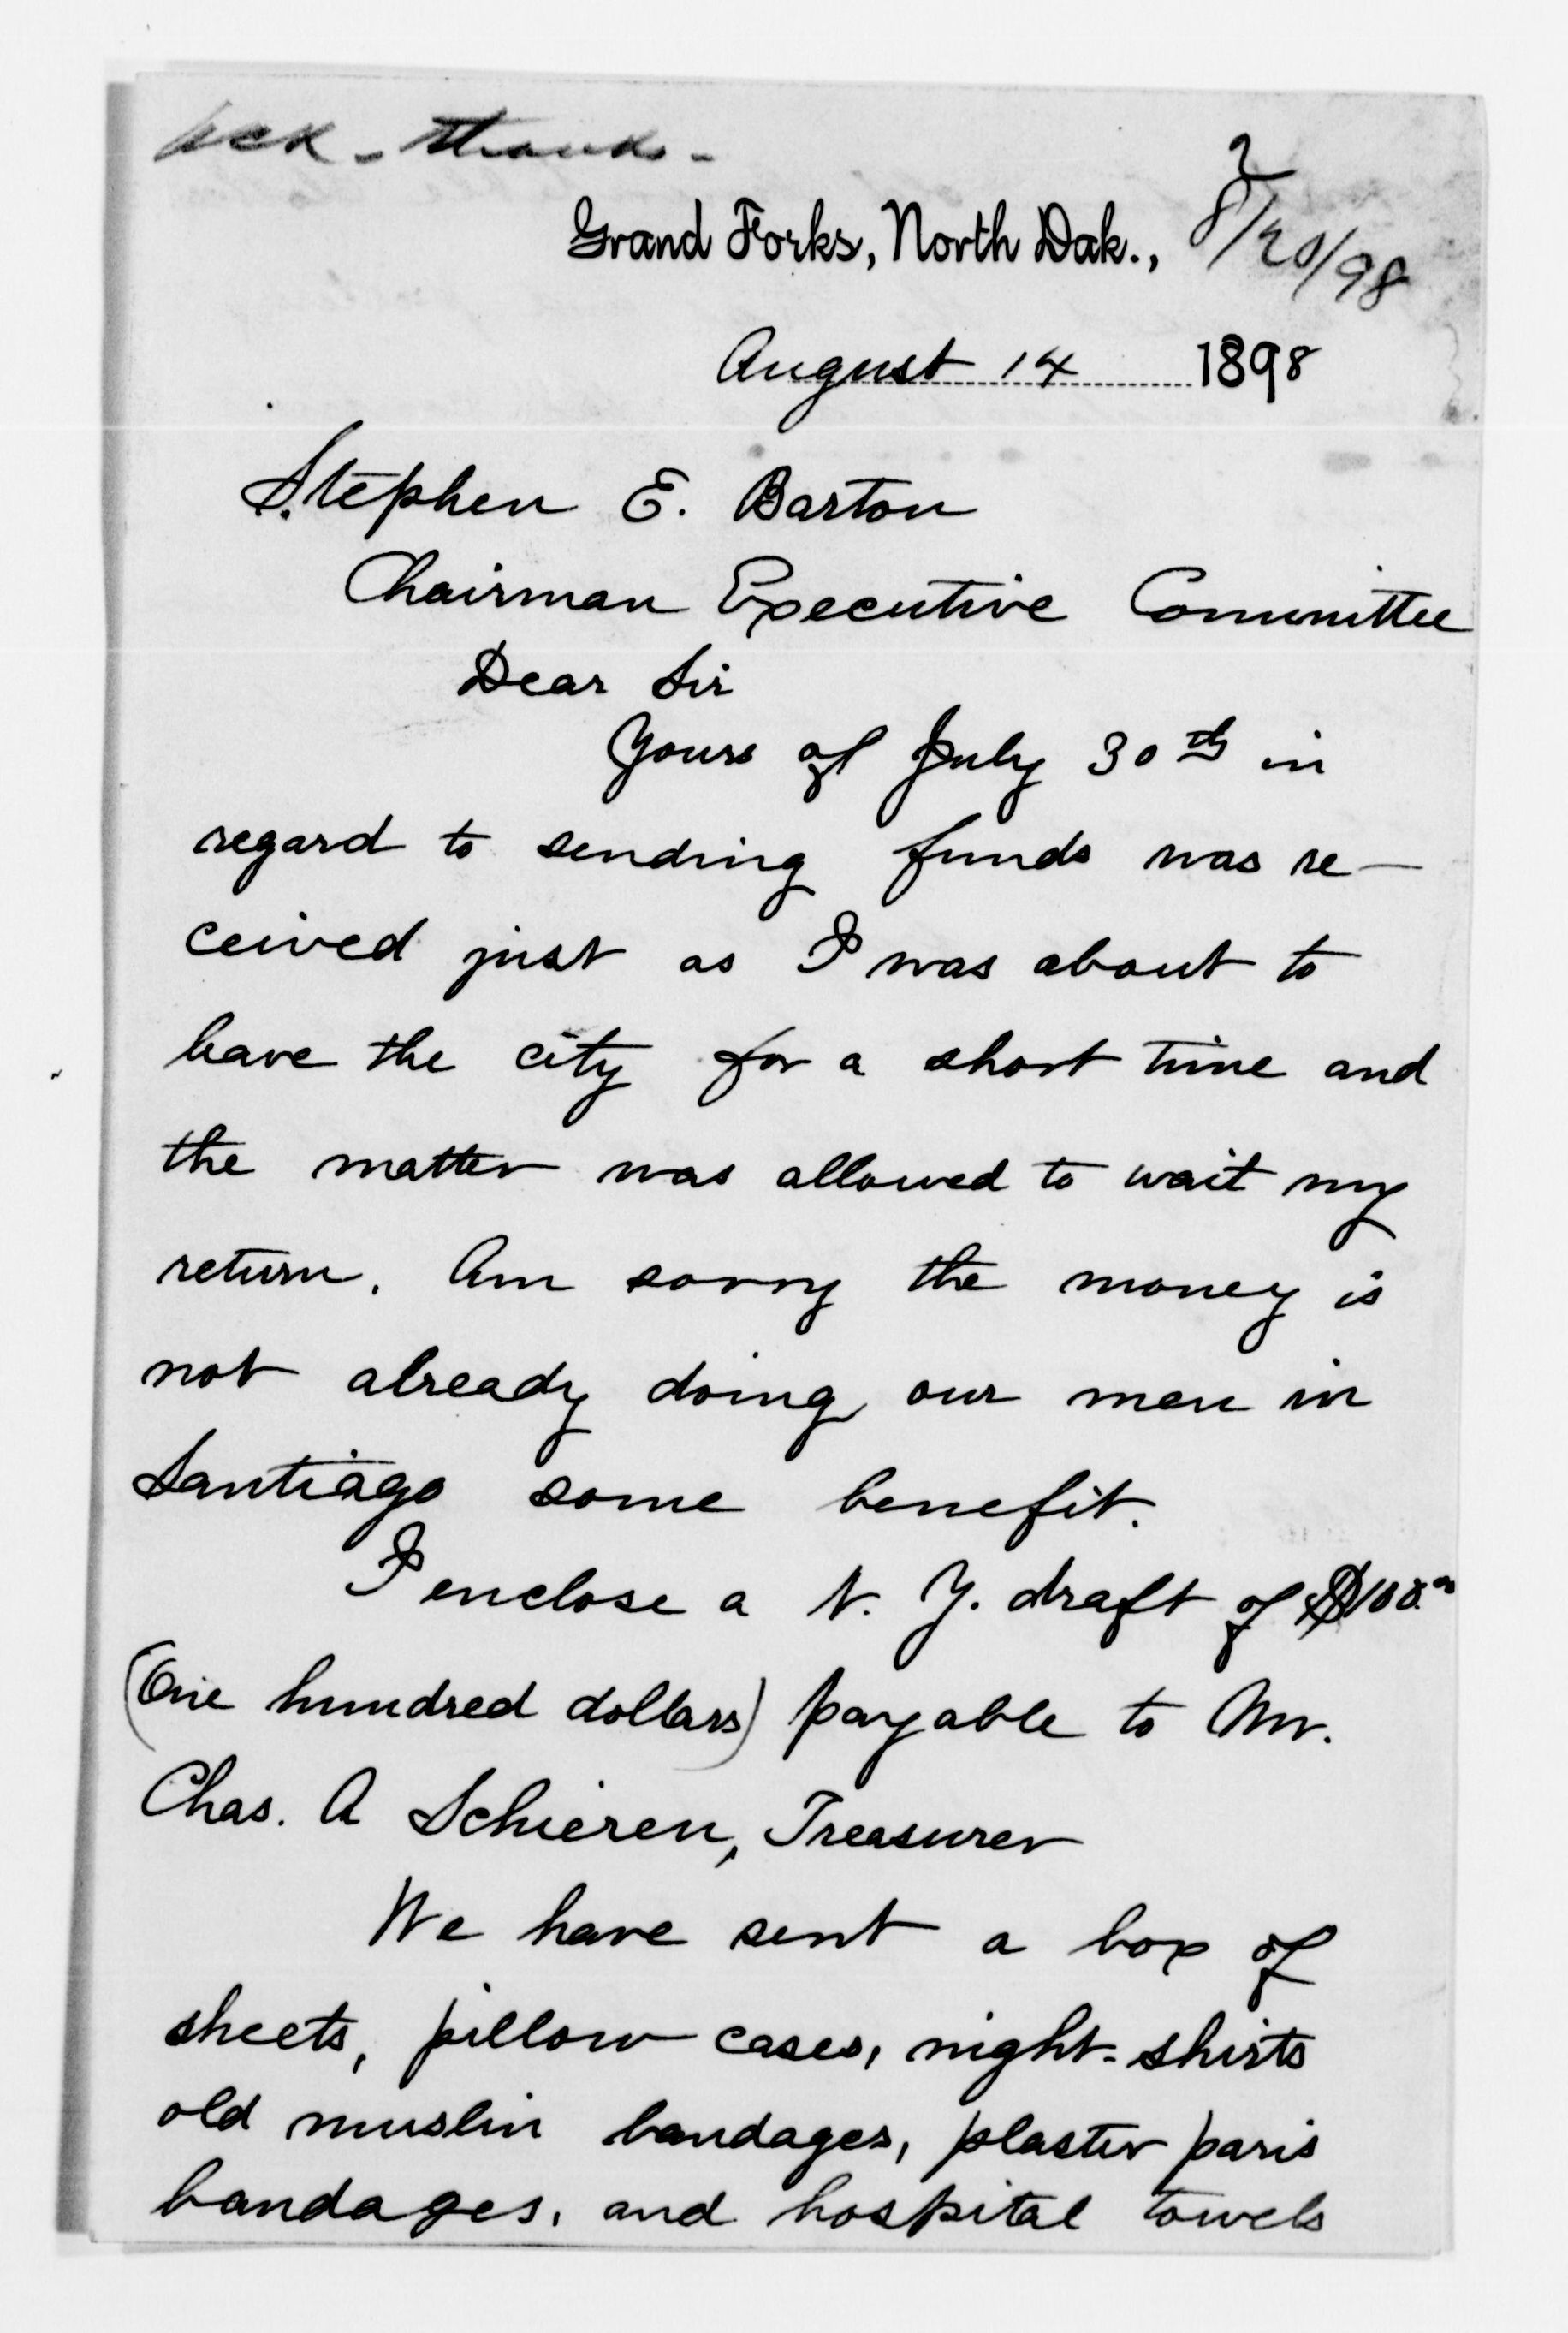 Ack - thanks -
Grand Forks, North Dak.,
8/20/98
August 14 1898
Stephen E. Barton
Chairman Executive Committee
Dear Sir
Yours of July 30th in
regard to sending funds was re-
ceived just as I was about to
leave the city for a short time and
the matter was allowed to wait my
return. Am sorry the money is
not already doing our men in
Santiago some benefit.
I enclose a N. Y. draft of $100.00
(One hundred dollars) payable to Mr.
Chas. A Schieren, Treasurer
We have sent a box of
sheets, pillow cases, night-shirts
old muslin bandages, plaster paris
bandages, and hospital towels